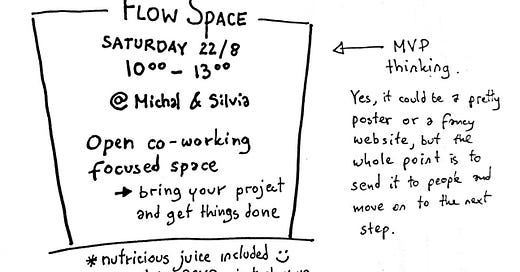 FLOW SPACE
SATURDAY 22/8
10⁰⁰ - 13⁰⁰
@ Michal & Silvia
Open co-working
focused space
→ bring your project
and get things done
* nutricious juice included ☺
← MVP
thinking.
Yes, it could be a pretty
poster or a fancy
website, but the
whole point is to
send it to people and
move on to the next
step.